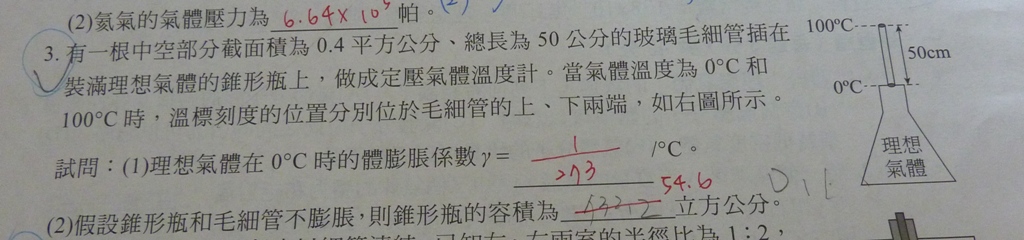 (2)氦氣的氣體壓力為 6.64×10⁵ 帕。(2)
3. 有一根中空部分截面積為 0.4 平方公分、總長為 50 公分的玻璃毛細管插在
裝滿理想氣體的錐形瓶上，做成定壓氣體溫度計。當氣體溫度為 0°C 和
100°C 時，溫標刻度的位置分別位於毛細管的上、下兩端，如右圖所示。
100°C
50cm
0°C
理想
氣體
試問：(1)理想氣體在 0°C 時的體膨脹係數 γ= 1/273 /°C。
54.6
(2)假設錐形瓶和毛細管不膨脹，則錐形瓶的容積為 立方公分。
已知左、右兩室的半徑比為 1:2，